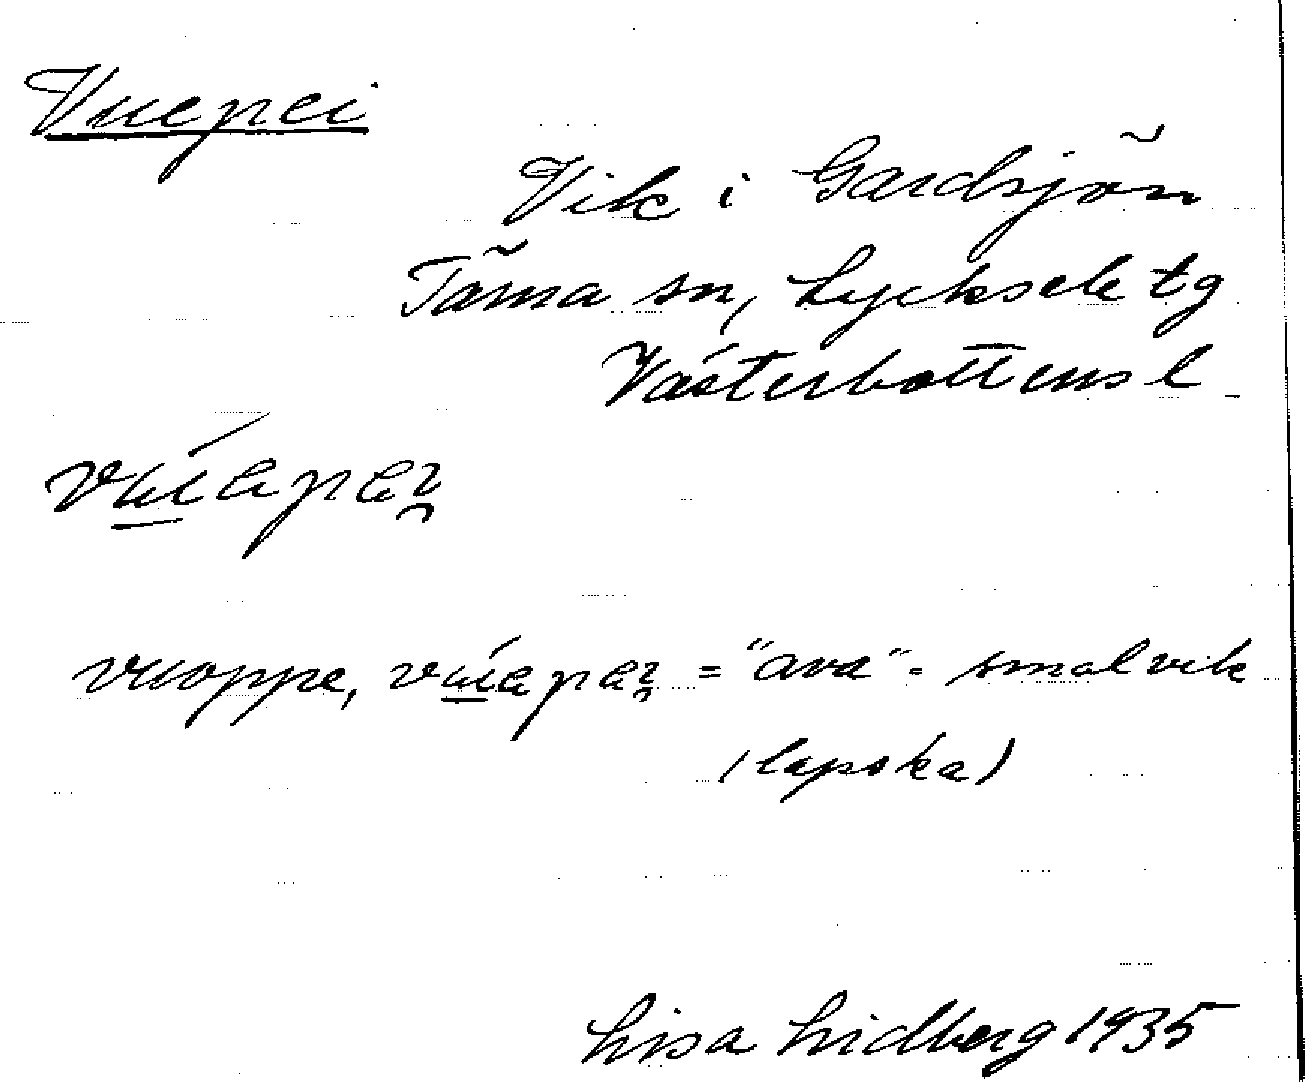 Vuepei
Vik i Gardsjön
Tärna sn, Lycksele tg
Västerbottens l
vuoppe, = "ava" - smal vik
(lapska)
Lisa Lidberg 1935